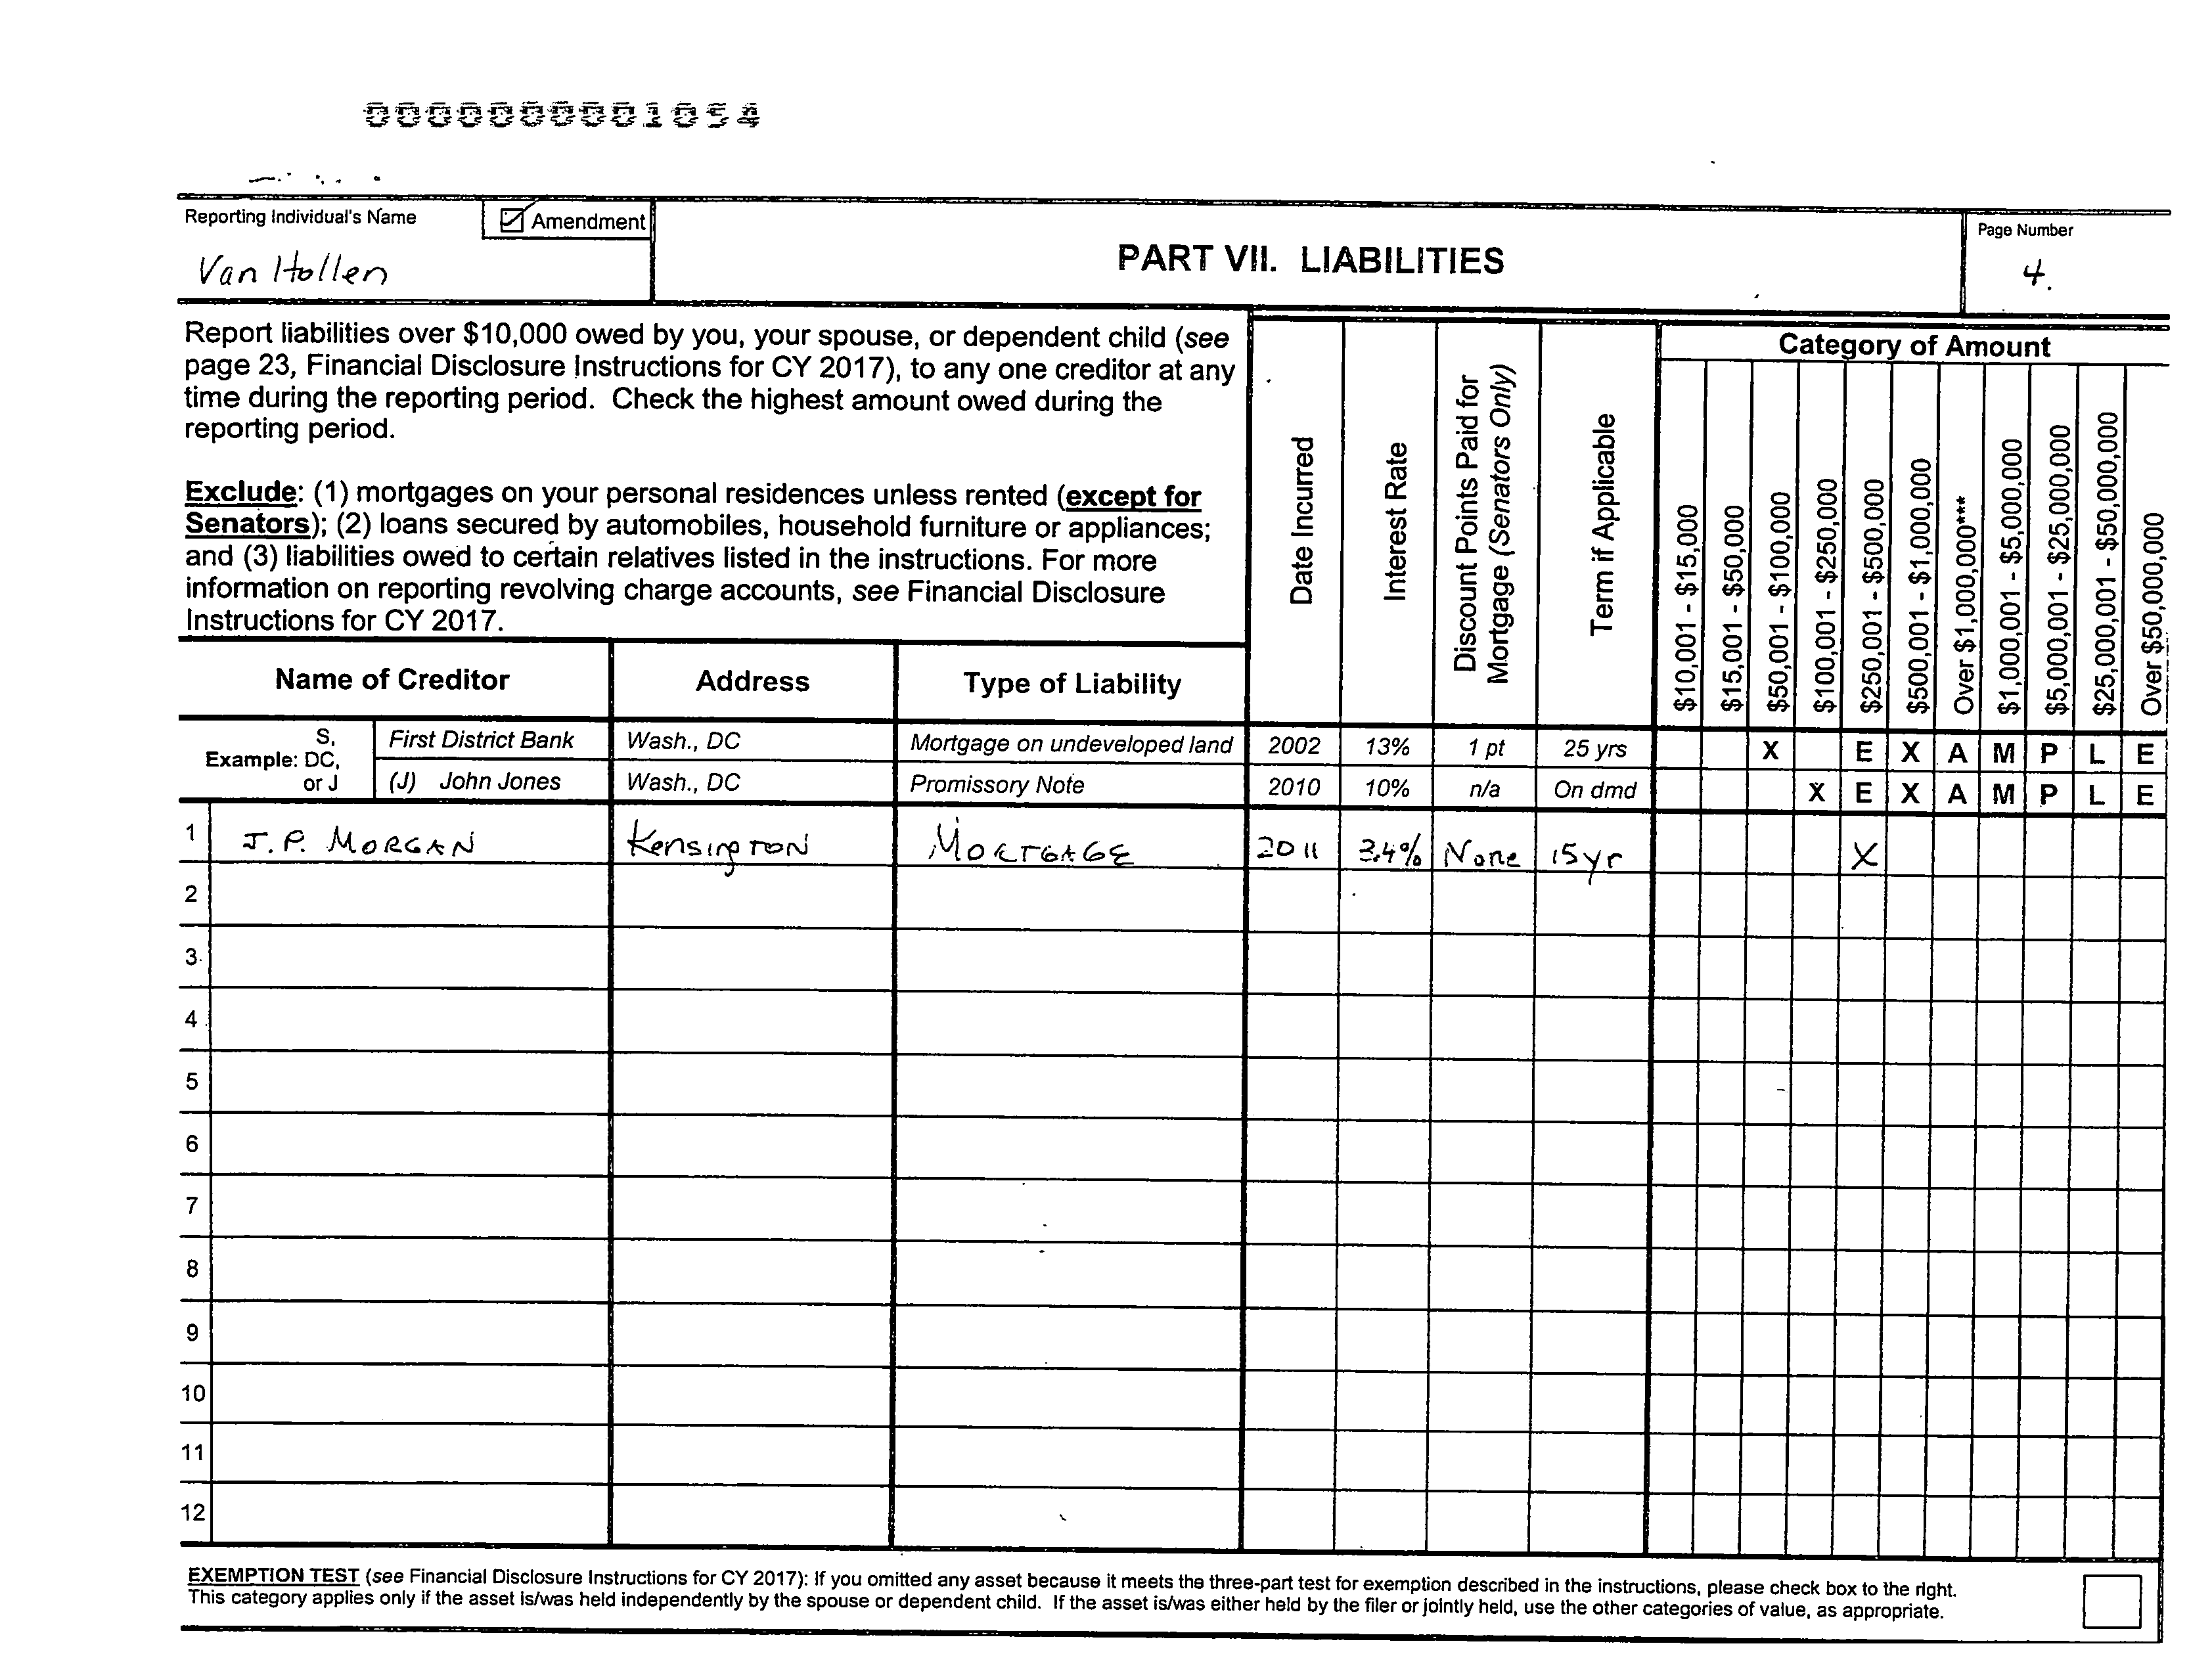 0000000001054
Reporting Individual's Name
Amendment
Van Hollen
PART VII. LIABILITIES
Page Number
4.
Report liabilities over $10,000 owed by you, your spouse, or dependent child (see
page 23, Financial Disclosure Instructions for CY 2017), to any one creditor at any
time during the reporting period. Check the highest amount owed during the
reporting period.
Exclude: (1) mortgages on your personal residences unless rented (except for
Senators); (2) loans secured by automobiles, household furniture or appliances;
and (3) liabilities owed to certain relatives listed in the instructions. For more
information on reporting revolving charge accounts, see Financial Disclosure
Instructions for CY 2017.
Name of Creditor
Address
Type of Liability
Date Incurred
Interest Rate
Discount Points Paid for
Mortgage (Senators Only)
Term if Applicable
Category of Amount
$10,001 - $15,000
$15,001 - $50,000
$50,001 - $100,000
$100,001 - $250,000
$250,001 - $500,000
$500,001 - $1,000,000
Over $1,000,000***
$1,000,001 - $5,000,000
$5,000,001 - $25,000,000
$25,000,001 - $50,000,000
Over $50,000,000
Example: S, DC, or J
First District Bank Wash., DC Mortgage on undeveloped land 2002 13% 1 pt 25 yrs X E X A M P L E
(J) John Jones Wash., DC Promissory Note 2010 10% n/a On dmd X E X A M P L E
1 J.P. MORGAN Kensington MORTGAGE 2011 3.4% None 15yr X
2
3
4
5
6
7
8
9
10
11
12
EXEMPTION TEST (see Financial Disclosure Instructions for CY 2017): If you omitted any asset because it meets the three-part test for exemption described in the instructions, please check box to the right.
This category applies only if the asset is/was held independently by the spouse or dependent child. If the asset is/was either held by the filer or jointly held, use the other categories of value, as appropriate.